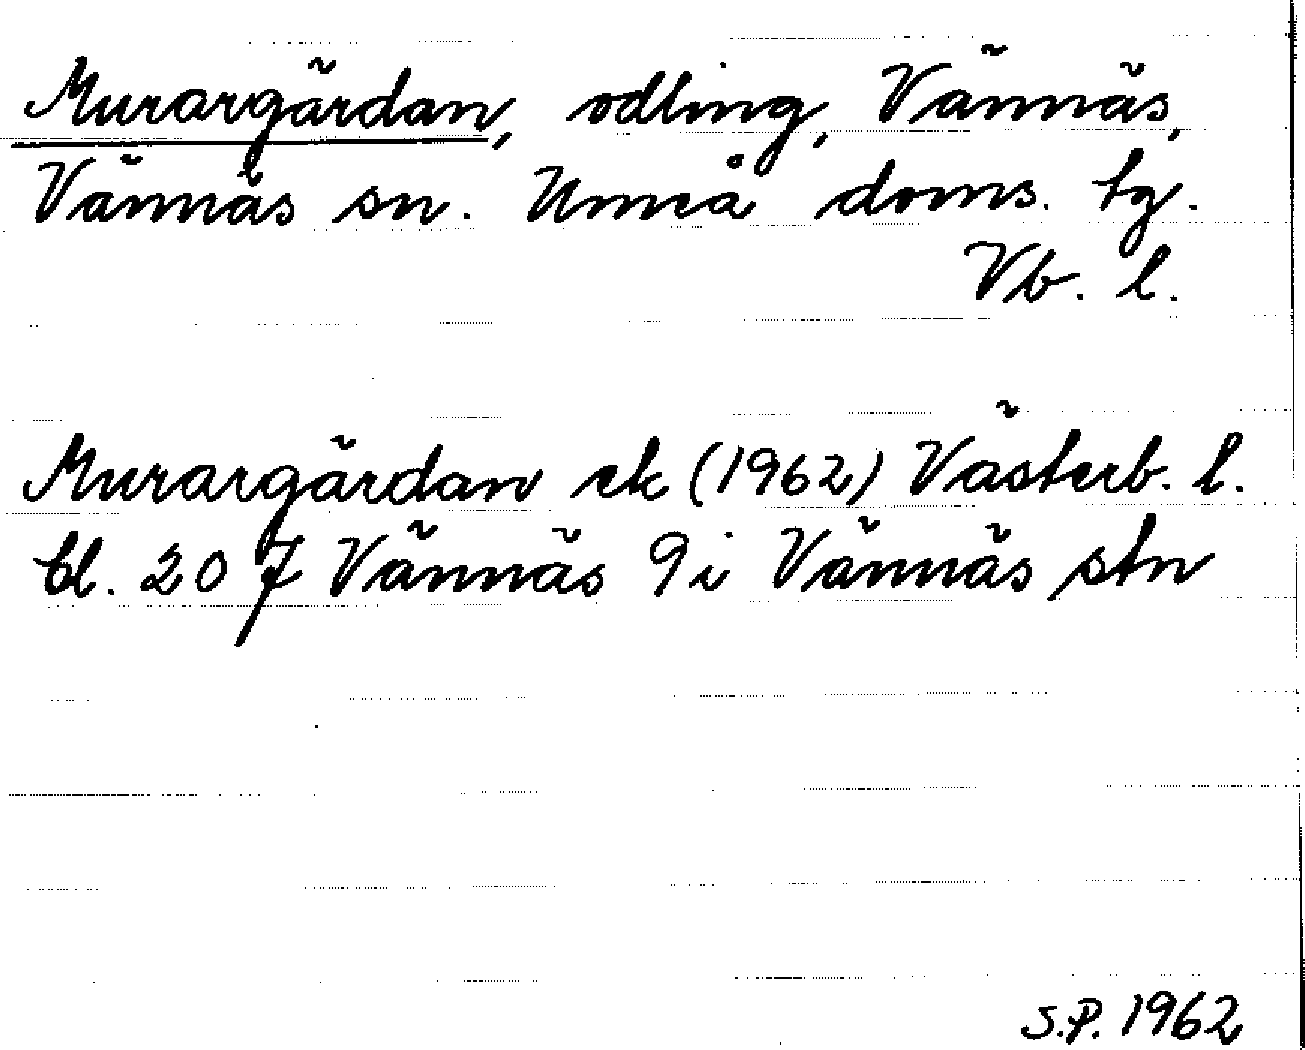 Murargärdan, odling, Vännäs,
Vännäs sn. Umeå doms. tg.
Vb. l.
Murargärdan ek (1962) Västerb. l.
bl. 207 Vännäs 9i Vännäs stn
S.P. 1962